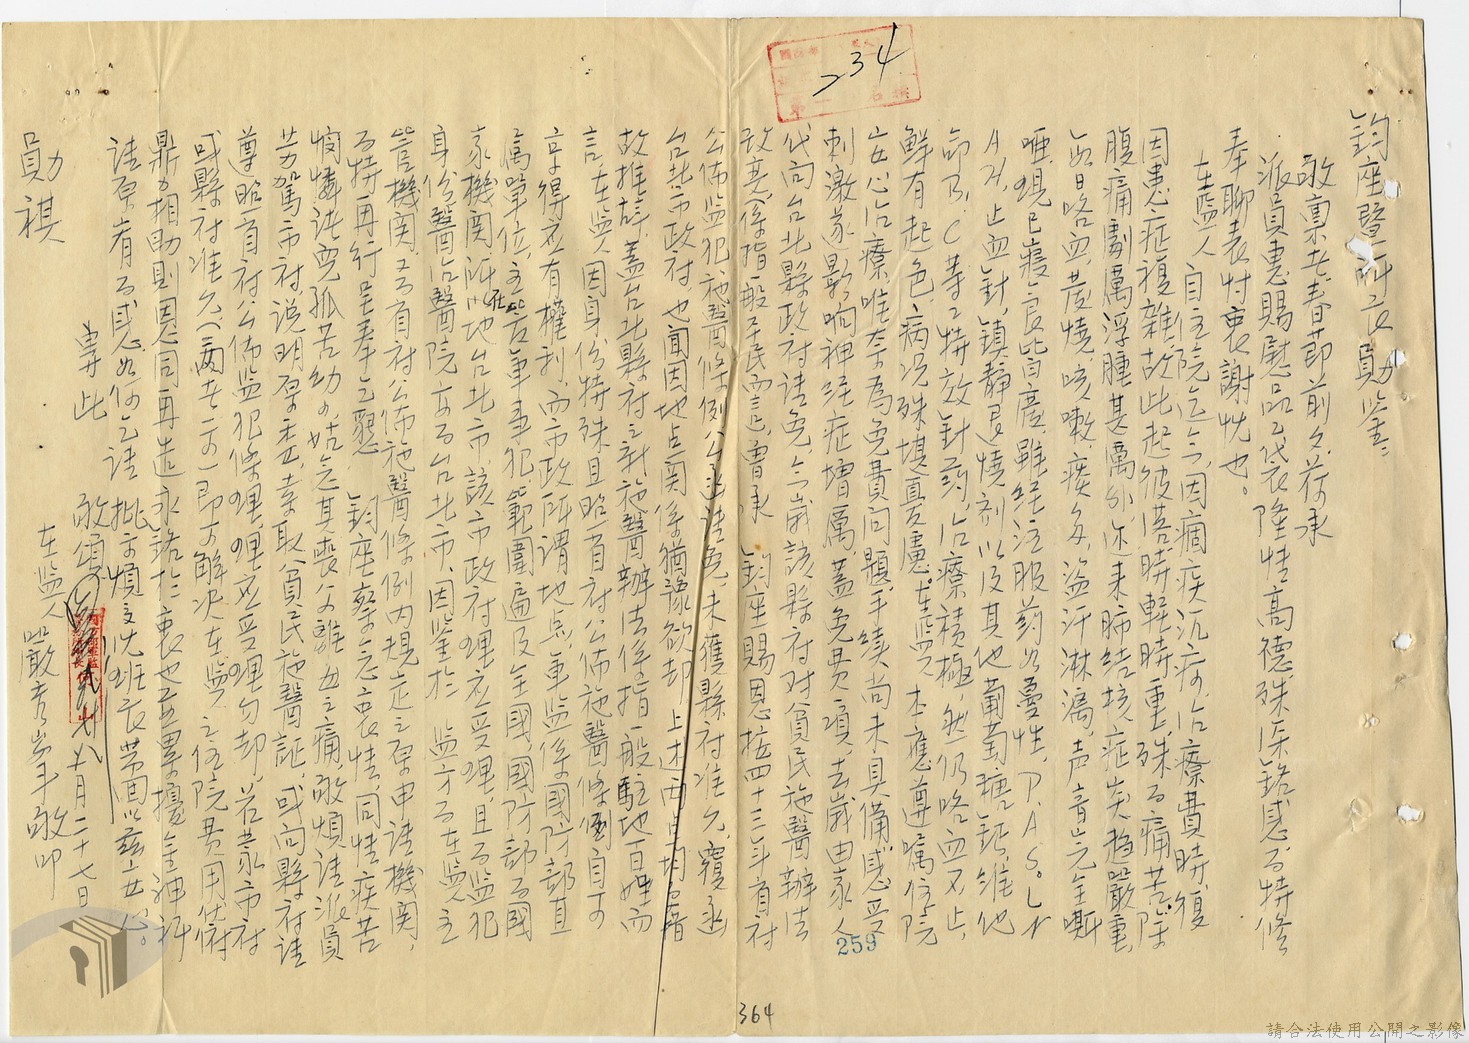 鈞座暨所長勛鑒：
敬稟者春節前夕荷承
派員惠賜慰品乙袋隆情高德殊深銘感而特修
奉聊表忖衷謝忱也。
在監人自住院迄今，因痼疾沉疴，治療費時，復
因患症複雜，故此起彼落，時輕時重，殊為痛苦。除
腹痛劇厲浮腫甚厲外，邇來肺結核症奐趨嚴重，
每日咯血，發燒，咳嗽，痰多，盜汗淋漓，声音完全嘶
啞，現已寢食皆廢，雖經注服药如曼性，P.A.S.
A.H.止血針，鎮靜退燒剂以及其他葡萄糖鈣，維他
命B,C等之特效針药，治療積極，然仍咯血不止，
鮮有起色，病況殊堪憂慮。在監人本應遵囑住院
安心治療，唯奈為免費问題，手续尚未具備，感受
刺激遂影响神经症增厲，蓋免費一項，去歲由家人
代向台北縣政府请免，今歲該縣府对貧民施醫辦法
改意（係指一般平民而言），曾承　鈞座賜恩按四十三年省府
公佈监犯施醫條例公函请免，未獲縣府准允，覆函
台北市政府，也闻因地点関係猶豫欲却，上述两点均有藉
故推辞，蓋台北縣府之新施醫辦法係指一般駐地百姓而
言，在監人因身份特殊且昭省府公佈施醫條例自可
享得应有權利，而市政所謂地点，軍监係國防部直
属單位，主管軍事犯，範圍遍及全國，國防部為國
家機関所在地台北市，該市政府理应受理，且為监犯
身份醫治醫院亦為台北市，因鉴於　监方為在監人主
管機関，又有省府公佈施醫條例内規定之原申请機関，
為特再行呈奉乞懇　鈞座察念衷情，同情疾苦
憫憐我免孤苦幼小，姑念其喪父離母之痛，敬煩请派員
劳駕市府，说明原委，索取貧民施醫証，或向縣府请
遵昭省府公佈监犯條理理应受理勿却，若蒙市府
或縣府准允（两者之一即可解决在監人之住院費用）俯
鼎力相助，則恩同再造，永銘於衷也，至累擾全神祈
请原宥為感，如何乞请批示煩交沈班長带回以兹安心。
　　專此
敬頌
勛祺
在監人嚴秀峯敬叩
月二十七日
234
259
364
請合法使用公開之影像